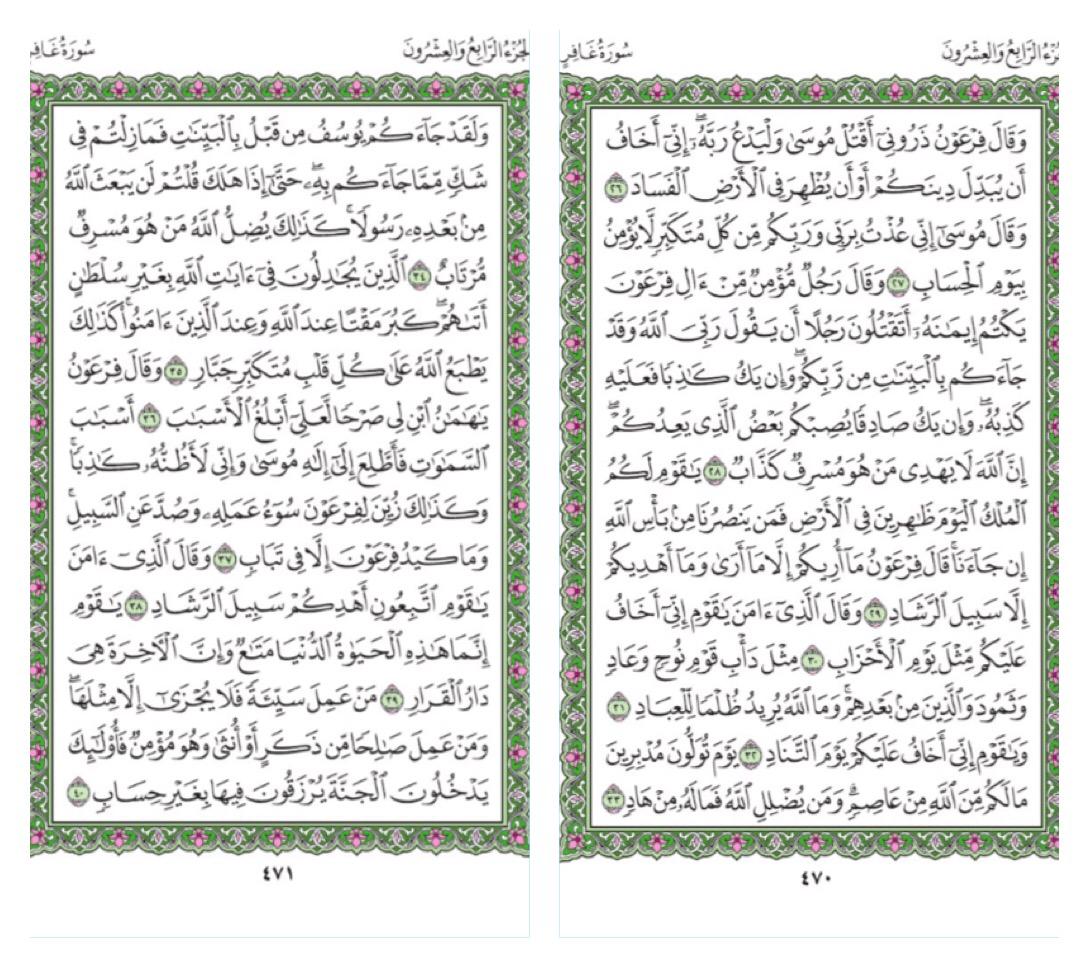 الجزء الرابع والعشرون
سورة غافر
وَقَالَ فِرْعَوْنُ ذَرُونِىٓ أَقْتُلْ مُوسَىٰ وَلْيَدْعُ رَبَّهُۥٓ ۖ إِنِّىٓ أَخَافُ
أَن يُبَدِّلَ دِينَكُمْ أَوْ أَن يُظْهِرَ فِى ٱلْأَرْضِ ٱلْفَسَادَ ٢٦
وَقَالَ مُوسَىٰٓ إِنِّى عُذْتُ بِرَبِّى وَرَبِّكُم مِّن كُلِّ مُتَكَبِّرٍ لَّا يُؤْمِنُ
بِيَوْمِ ٱلْحِسَابِ ٢٧ وَقَالَ رَجُلٌ مُّؤْمِنٌ مِّنْ ءَالِ فِرْعَوْنَ
يَكْتُمُ إِيمَٰنَهُۥٓ أَتَقْتُلُونَ رَجُلًا أَن يَقُولَ رَبِّىَ ٱللَّهُ وَقَدْ
جَآءَكُم بِٱلْبَيِّنَٰتِ مِن رَّبِّكُمْ ۖ وَإِن يَكُ كَٰذِبًا فَعَلَيْهِ
كَذِبُهُۥ ۖ وَإِن يَكُ صَادِقًا يُصِبْكُم بَعْضُ ٱلَّذِى يَعِدُكُمْ ۖ
إِنَّ ٱللَّهَ لَا يَهْدِى مَنْ هُوَ مُسْرِفٌ كَذَّابٌ ٢٨ يَٰقَوْمِ لَكُمُ
ٱلْمُلْكُ ٱلْيَوْمَ ظَٰهِرِينَ فِى ٱلْأَرْضِ فَمَن يَنصُرُنَا مِنۢ بَأْسِ ٱللَّهِ
إِن جَآءَنَا ۚ قَالَ فِرْعَوْنُ مَآ أُرِيكُمْ إِلَّا مَآ أَرَىٰ وَمَآ أَهْدِيكُمْ
إِلَّا سَبِيلَ ٱلرَّشَادِ ٢٩ وَقَالَ ٱلَّذِىٓ ءَامَنَ يَٰقَوْمِ إِنِّىٓ أَخَافُ
عَلَيْكُم مِّثْلَ يَوْمِ ٱلْأَحْزَابِ ٣٠ مِثْلَ دَأْبِ قَوْمِ نُوحٍ وَعَادٍ
وَثَمُودَ وَٱلَّذِينَ مِنۢ بَعْدِهِمْ ۚ وَمَا ٱللَّهُ يُرِيدُ ظُلْمًا لِّلْعِبَادِ ٣١
وَيَٰقَوْمِ إِنِّىٓ أَخَافُ عَلَيْكُمْ يَوْمَ ٱلتَّنَادِ ٣٢ يَوْمَ تُوَلُّونَ مُدْبِرِينَ
مَا لَكُم مِّنَ ٱللَّهِ مِنْ عَاصِمٍ ۗ وَمَن يُضْلِلِ ٱللَّهُ فَمَا لَهُۥ مِنْ هَادٍ ٣٣
٤٧٠
الجزء الرابع والعشرون
سورة غافر
وَلَقَدْ جَآءَكُمْ يُوسُفُ مِن قَبْلُ بِٱلْبَيِّنَٰتِ فَمَا زِلْتُمْ فِى
شَكٍّ مِّمَّا جَآءَكُم بِهِۦ ۖ حَتَّىٰٓ إِذَا هَلَكَ قُلْتُمْ لَن يَبْعَثَ ٱللَّهُ
مِنۢ بَعْدِهِۦ رَسُولًا ۚ كَذَٰلِكَ يُضِلُّ ٱللَّهُ مَنْ هُوَ مُسْرِفٌ
مُّرْتَابٌ ٣٤ ٱلَّذِينَ يُجَٰدِلُونَ فِىٓ ءَايَٰتِ ٱللَّهِ بِغَيْرِ سُلْطَٰنٍ
أَتَىٰهُمْ ۖ كَبُرَ مَقْتًا عِندَ ٱللَّهِ وَعِندَ ٱلَّذِينَ ءَامَنُوا۟ ۚ كَذَٰلِكَ
يَطْبَعُ ٱللَّهُ عَلَىٰ كُلِّ قَلْبِ مُتَكَبِّرٍ جَبَّارٍ ٣٥ وَقَالَ فِرْعَوْنُ
يَٰهَٰمَٰنُ ٱبْنِ لِى صَرْحًا لَّعَلِّىٓ أَبْلُغُ ٱلْأَسْبَٰبَ ٣٦ أَسْبَٰبَ
ٱلسَّمَٰوَٰتِ فَأَطَّلِعَ إِلَىٰٓ إِلَٰهِ مُوسَىٰ وَإِنِّى لَأَظُنُّهُۥ كَٰذِبًا ۚ
وَكَذَٰلِكَ زُيِّنَ لِفِرْعَوْنَ سُوٓءُ عَمَلِهِۦ وَصُدَّ عَنِ ٱلسَّبِيلِ ۚ
وَمَا كَيْدُ فِرْعَوْنَ إِلَّا فِى تَبَابٍ ٣٧ وَقَالَ ٱلَّذِىٓ ءَامَنَ
يَٰقَوْمِ ٱتَّبِعُونِ أَهْدِكُمْ سَبِيلَ ٱلرَّشَادِ ٣٨ يَٰقَوْمِ
إِنَّمَا هَٰذِهِ ٱلْحَيَوٰةُ ٱلدُّنْيَا مَتَٰعٌ وَإِنَّ ٱلْءَاخِرَةَ هِىَ
دَارُ ٱلْقَرَارِ ٣٩ مَنْ عَمِلَ سَيِّئَةً فَلَا يُجْزَىٰٓ إِلَّا مِثْلَهَا ۖ
وَمَنْ عَمِلَ صَٰلِحًا مِّن ذَكَرٍ أَوْ أُنثَىٰ وَهُوَ مُؤْمِنٌ فَأُو۟لَٰٓئِكَ
يَدْخُلُونَ ٱلْجَنَّةَ يُرْزَقُونَ فِيهَا بِغَيْرِ حِسَابٍ ٤٠
٤٧١